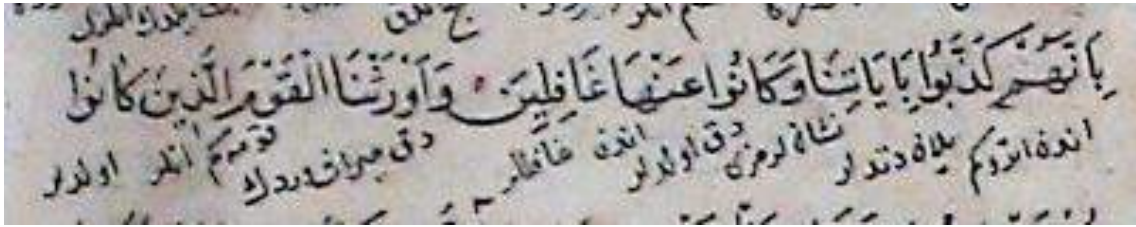 بِاَنَّهُمْ كَذَّبُوا بِاٰيَاتِنَا وَكَانُوا عَنْهَا غَافِلِينَ وَاَوْرَثْنَا الْقَوْمَ الَّذِينَ كَانُوا
اندن اتروكم يلان دتدلر نشانلرمزى دقى اولدلر اندن غافللر دقى ميراث وردك قومه كم انلر اولدلر